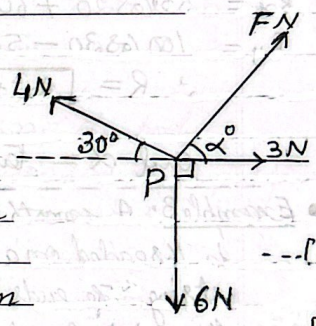 FN
4N
30°
α°
3N
P
6N